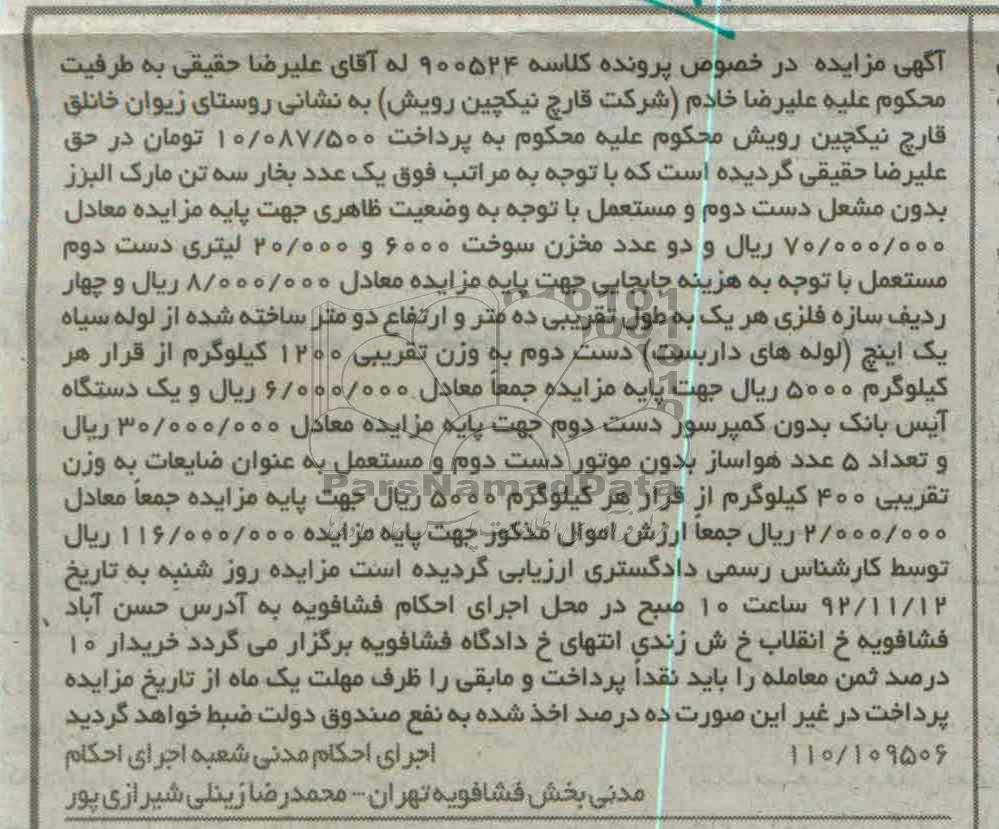 آگهی مزایده در خصوص پرونده کلاسه ۹۰۰۵۲۴ له آقای علیرضا حقیقی به طرفیت
محکوم علیه علیرضا خادم (شرکت قارچ نیکچین رویش) به نشانی روستای زیوان خانلق
قارچ نیکچین رویش محکوم علیه محکوم به پرداخت ۱۰/۰۸۷/۵۰۰ تومان در حق
علیرضا حقیقی گردیده است که با توجه به مراتب فوق یک عدد بخار سه تن مارک البرز
بدون مشعل دست دوم و مستعمل با توجه به وضعیت ظاهری جهت پایه مزایده معادل
۷۰/۰۰۰/۰۰۰ ریال و دو عدد مخزن سوخت ۶۰۰۰ و ۲۰/۰۰۰ لیتری دست دوم
مستعمل با توجه به هزینه جابجایی جهت پایه مزایده معادل ۸/۰۰۰/۰۰۰ ریال و چهار
ردیف سازه فلزی هر یک به طول تقریبی ده متر و ارتفاع دو متر ساخته شده از لوله سیاه
یک اینچ (لوله های داربست) دست دوم به وزن تقریبی ۱۲۰۰ کیلوگرم از قرار هر
کیلوگرم ۵۰۰۰ ریال جهت پایه مزایده جمعاً معادل ۶/۰۰۰/۰۰۰ ریال و یک دستگاه
آیس بانک بدون کمپرسور دست دوم جهت پایه مزایده معادل ۳۰/۰۰۰/۰۰۰ ریال
و تعداد ۵ عدد هواساز بدون موتور دست دوم و مستعمل به عنوان ضایعات به وزن
ParsNamadData
تقریبی ۴۰۰ کیلوگرم از قرار هر کیلوگرم ۵۰۰۰ ریال جهت پایه مزایده جمعاً معادل
۲/۰۰۰/۰۰۰ ریال جمعاً ارزش اموال مذکور جهت پایه مزایده ۱۱۶/۰۰۰/۰۰۰ ریال
توسط کارشناس رسمی دادگستری ارزیابی گردیده است مزایده روز شنبه به تاریخ
۹۲/۱۱/۱۲ ساعت ۱۰ صبح در محل اجرای احکام فشافویه به آدرس حسن آباد
فشافویه خ انقلاب خ ش زندی انتهای خ دادگاه فشافویه برگزار می گردد خریدار ۱۰
درصد ثمن معامله را باید نقداً پرداخت و مابقی را ظرف مهلت یک ماه از تاریخ مزایده
پرداخت در غیر این صورت ده درصد اخذ شده به نفع صندوق دولت ضبط خواهد گردید
۱۱۰/۱۰۹۵۰۶ اجرای احکام مدنی شعبه اجرای احکام
مدنی بخش فشافویه تهران -- محمدرضا زینلی شیرازی پور